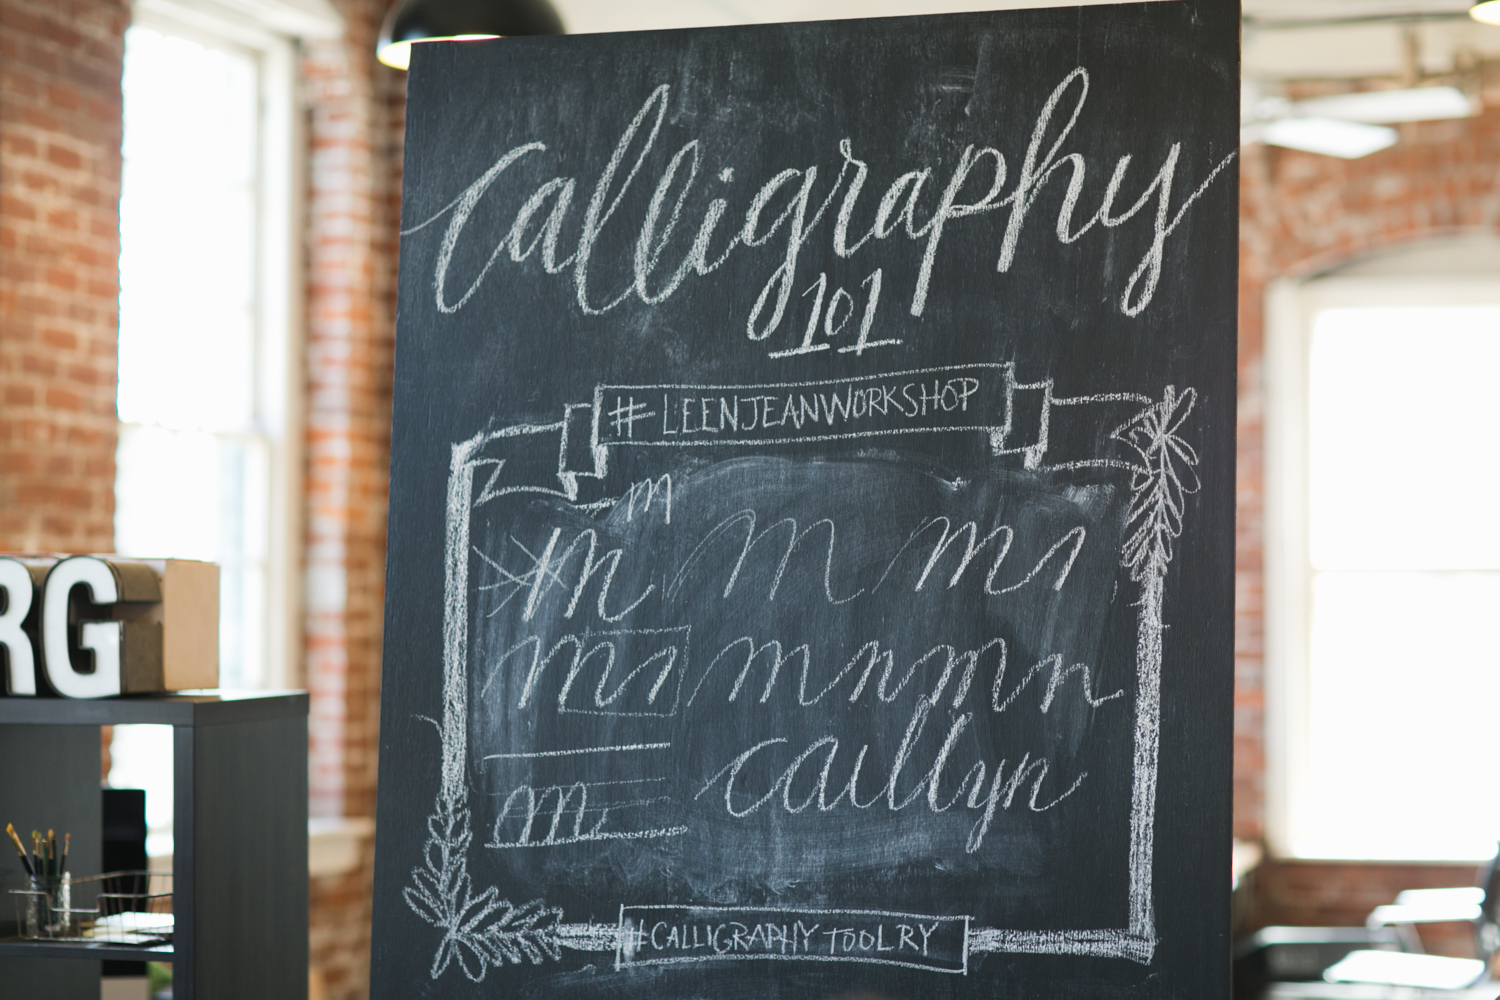 Calligraphy
101
# LEENJEANWORKSHOP
m
m m m
m m m n m n
caillyn
m
#CALLIGRAPHY TOOLRY
RG